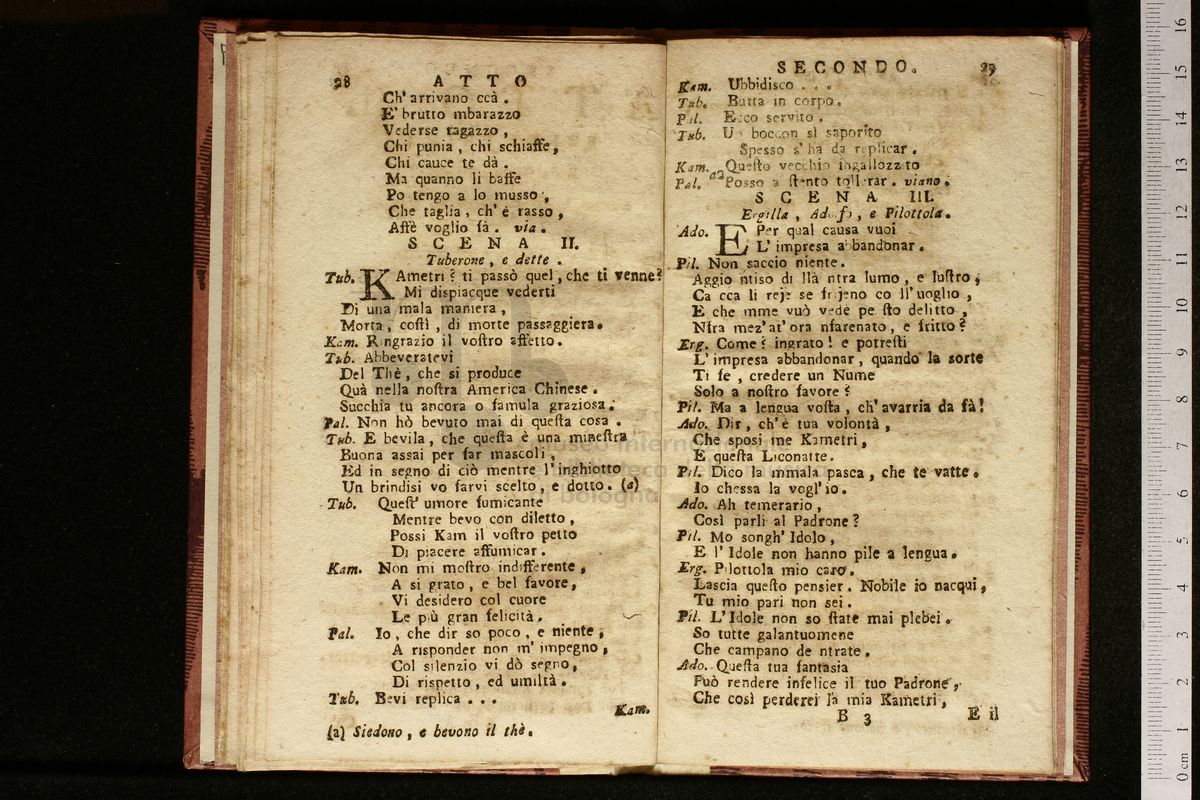 28 ATTO
Ch' arrivano ccà.
E' brutto mbarazzo
Vederse ragazzo,
Chi punia, chi schiaffe,
Chi cauce te dà.
Ma quanno li baffe
Po tengo a lo musso,
Che taglia, ch' è rasso,
Affè voglio fà. via.
SCENA II.
Tuberone, e dette.
Tub. KAmetri? ti passò quel, che ti venne?
Mi dispiacque vederti
Di una mala maniera,
Morta, costì, di morte passaggiera.
Kam. Ringrazio il vostro affetto.
Tub. Abbeveratevi
Del Thè, che si produce
Quà nella nostra America Chinese.
Succhia tu ancora o famula graziosa.
Pal. Non hò bevuto mai di questa cosa.
Tub. E bevila, che questa è una minestra
Buona assai per far mascoli,
Ed in segno di ciò mentre l'inghiotto
Un brindisi vo farvi scelto, e dotto. (a)
Tub. Quest' umore fumicante
Mentre bevo con diletto,
Possi Kam il vostro petto
Di piacere affumicar.
Kam. Non mi mostro indifferente,
A si grato, e bel favore,
Vi desidero col cuore
Le più gran felicità.
Pal. Io, che dir so poco, e niente,
A risponder non m' impegno,
Col silenzio vi dò segno,
Di rispetto, ed umiltà.
Tub. Bevi replica . . .
Kam.
(a) Siedono, e bevono il thè.
SECONDO. 29
Kam. Ubbidisco . . .
Tub. Butta in corpo.
Pal. Ecco servito.
Tub. Un boccon sì saporito
Spesso s' ha da replicar.
Kam. Questo vecchio ingallozzito
Pal. a2 Posso a stento tollerar. viano.
SCENA III.
Ergilla, Adolfo, e Pilottola.
Ado. E Per qual causa vuoi
L' impresa abbandonar.
Pil. Non saccio niente.
Aggio ntiso di llà ntra lumo, e lustro,
Ca cca li reje se frijeno co ll' uoglio,
E che mme vuò vede pe sto delitto,
Nfra mez' at' ora nfarenato, e fritto?
Erg. Come? ingrato! e potresti
L' impresa abbandonar, quando la sorte
Ti fe, credere un Nume
Solo a nostro favore?
Pil. Ma a lengua vosta, ch' avarria da fà!
Ado. Dir, ch' è tua volontà,
Che sposi me Kametri,
E questa Liconatte.
Pil. Dico la mmala pasca, che te vatte.
Io chessa la vogl' io.
Ado. Ah temerario,
Così parli al Padrone?
Pil. Mo songh' Idolo,
E l' Idole non hanno pile a lengua.
Erg. Pilottola mio caro.
Lascia questo pensier. Nobile io nacqui,
Tu mio pari non sei.
Pil. L' Idole non so state mai plebei.
So tutte galantuomene
Che campano de ntrate.
Ado. Questa tua fantasia
Può rendere infelice il tuo Padrone,
Che così perderei la mia Kametri,
B 3 E il